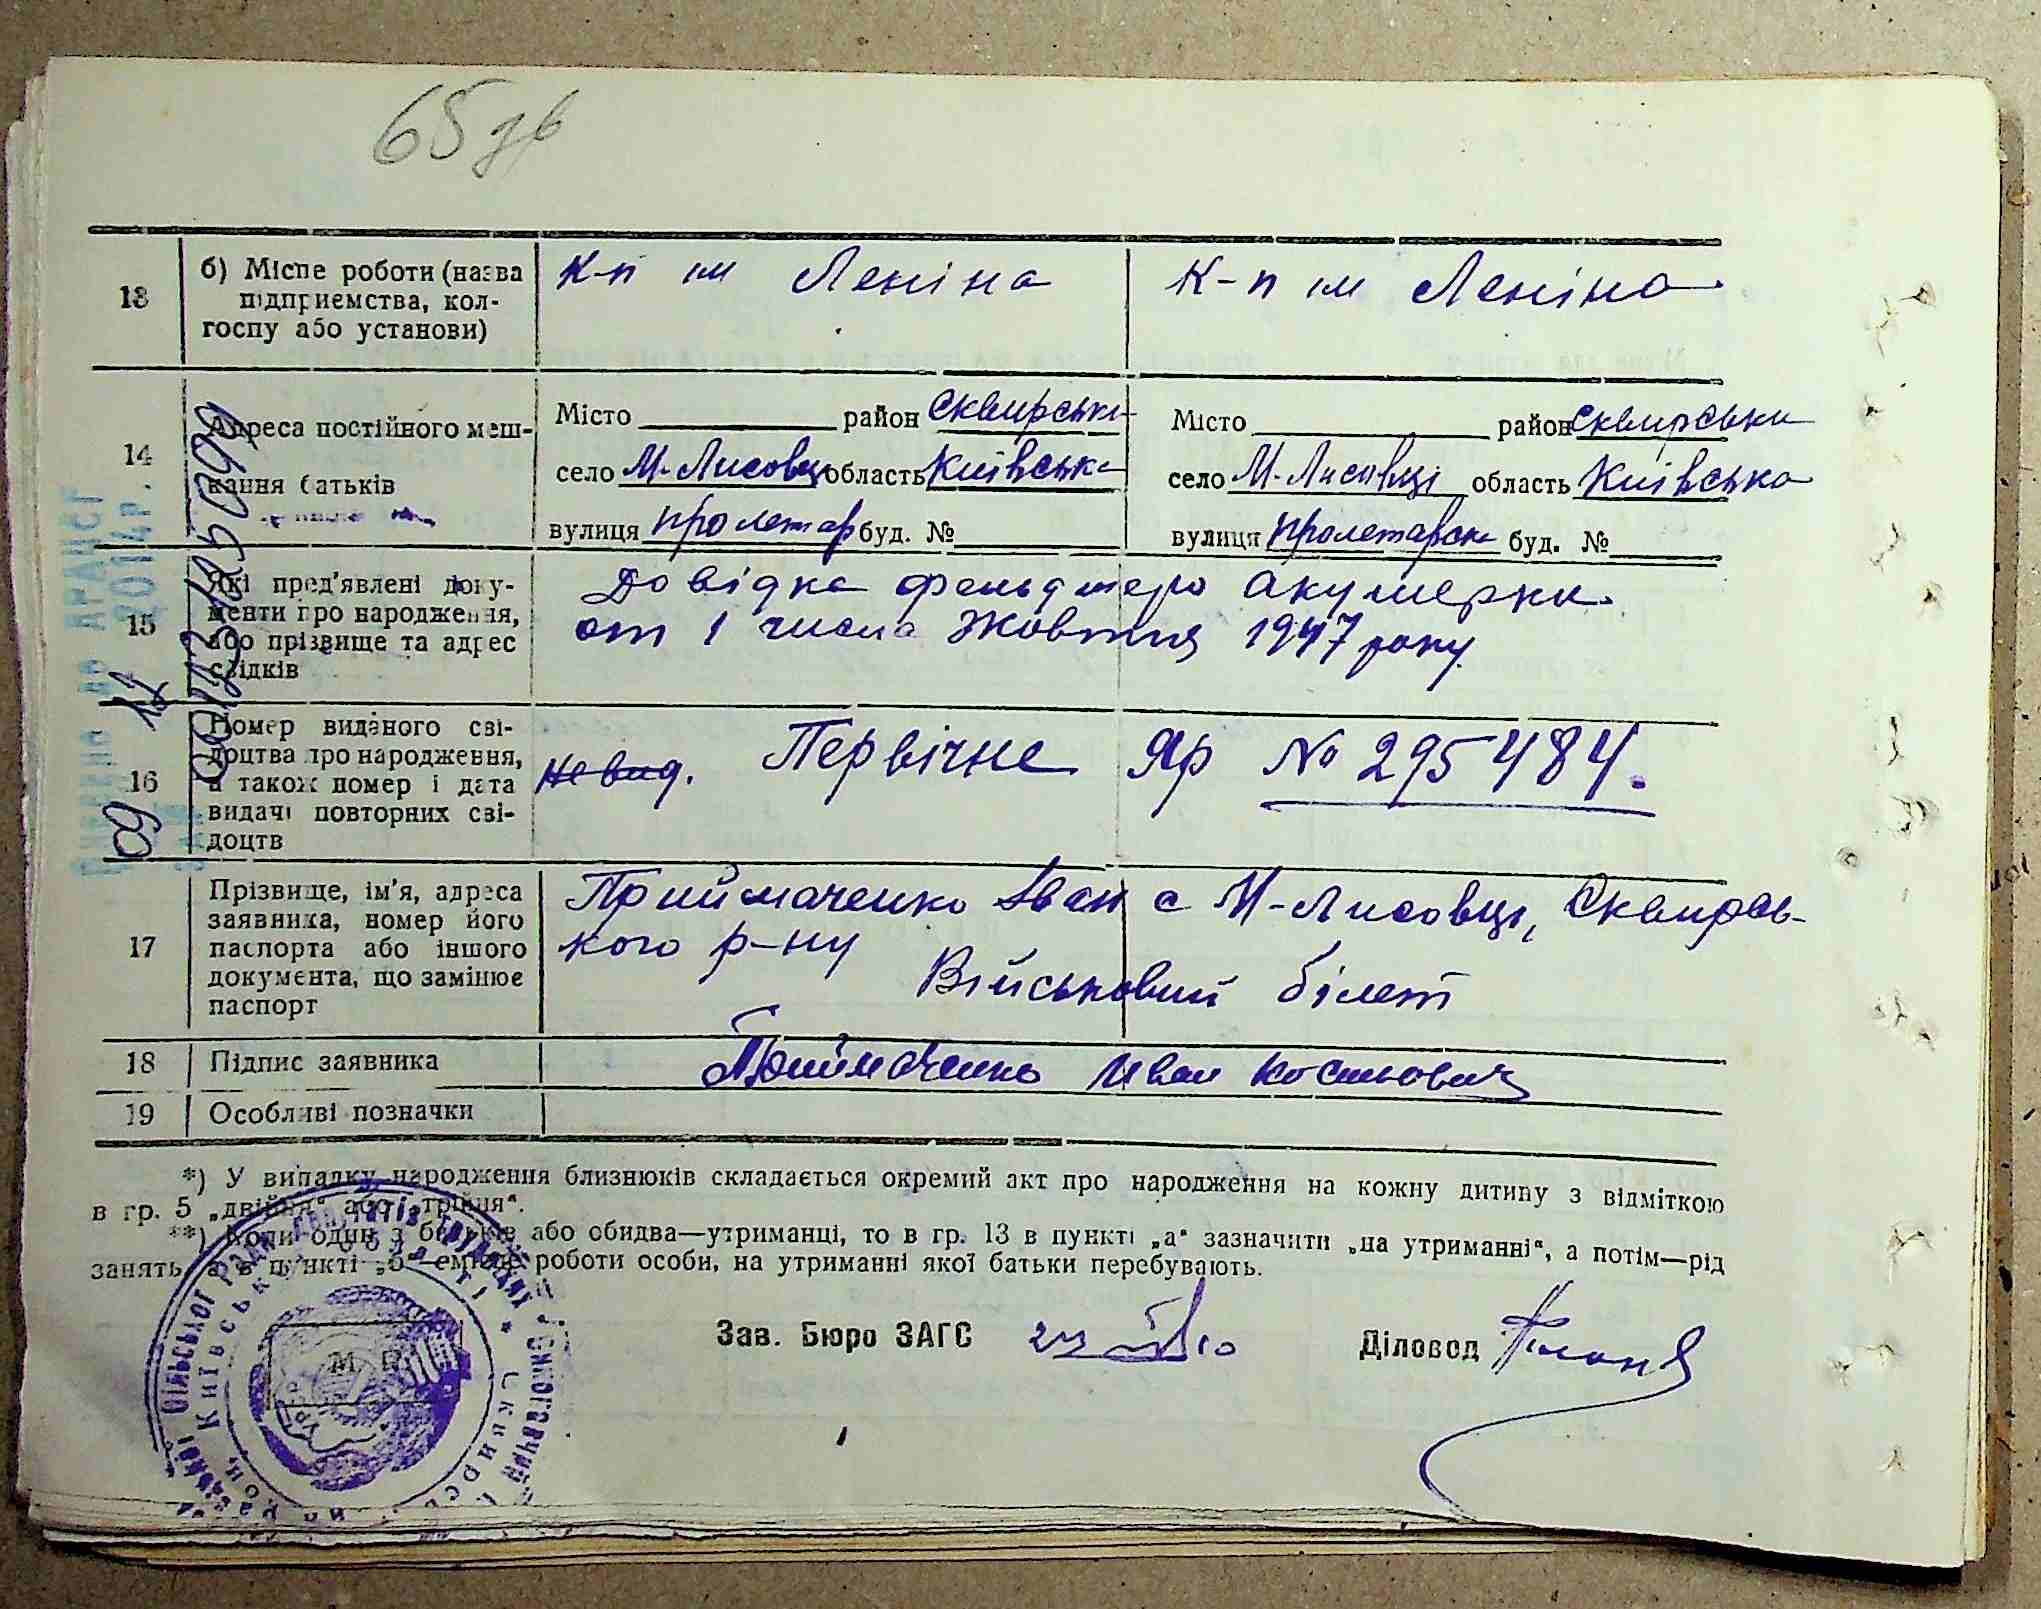 65зв
13
б) Місце роботи (назва
підприємства, кол-
госпу або установи)
К-п ім Леніна
К-п ім Леніна
14
Адреса постійного меш-
кання батьків
Місто район Сквирськи
село М-Лисовці область Київська
вулиця пролетар буд. №
Місто район Сквирськи
село М-Лисовці область Київська
вулиця пролетарск буд. №
15
Які пред'явлені доку-
менти про народження,
або прізвище та адрес
свідків
Довідка фельдшера акушерки
от 1 числа Жовтня 1947 року
16
Номер виданого сві-
доцтва про народження,
а також номер і дата
видачі повторних сві-
доцтв
не вид. Первічне Яр № 295484.
17
Прізвище, ім'я, адреса
заявника, номер його
паспорта або іншого
документа, що замінює
паспорт
Приймаченко Іван с М-Лисовці, Сквирсь-
кого р-ну
Військовий білет
18
Підпис заявника
Приймаченко Иван Костьович
19
Особливі позначки
*) У випадку народження близнюків складається окремий акт про народження на кожну дитину з відміткою
в гр. 5 „двійня“ або „трійня“.
**) Коли один з батьків або обидва—утриманці, то в гр. 13 в пункті „а“ зазначити „на утриманні“, а потім—рід
занять, а в пункті „б“—емісце роботи особи, на утриманні якої батьки перебувають.
Зав. Бюро ЗАГС
Діловод
М. П.